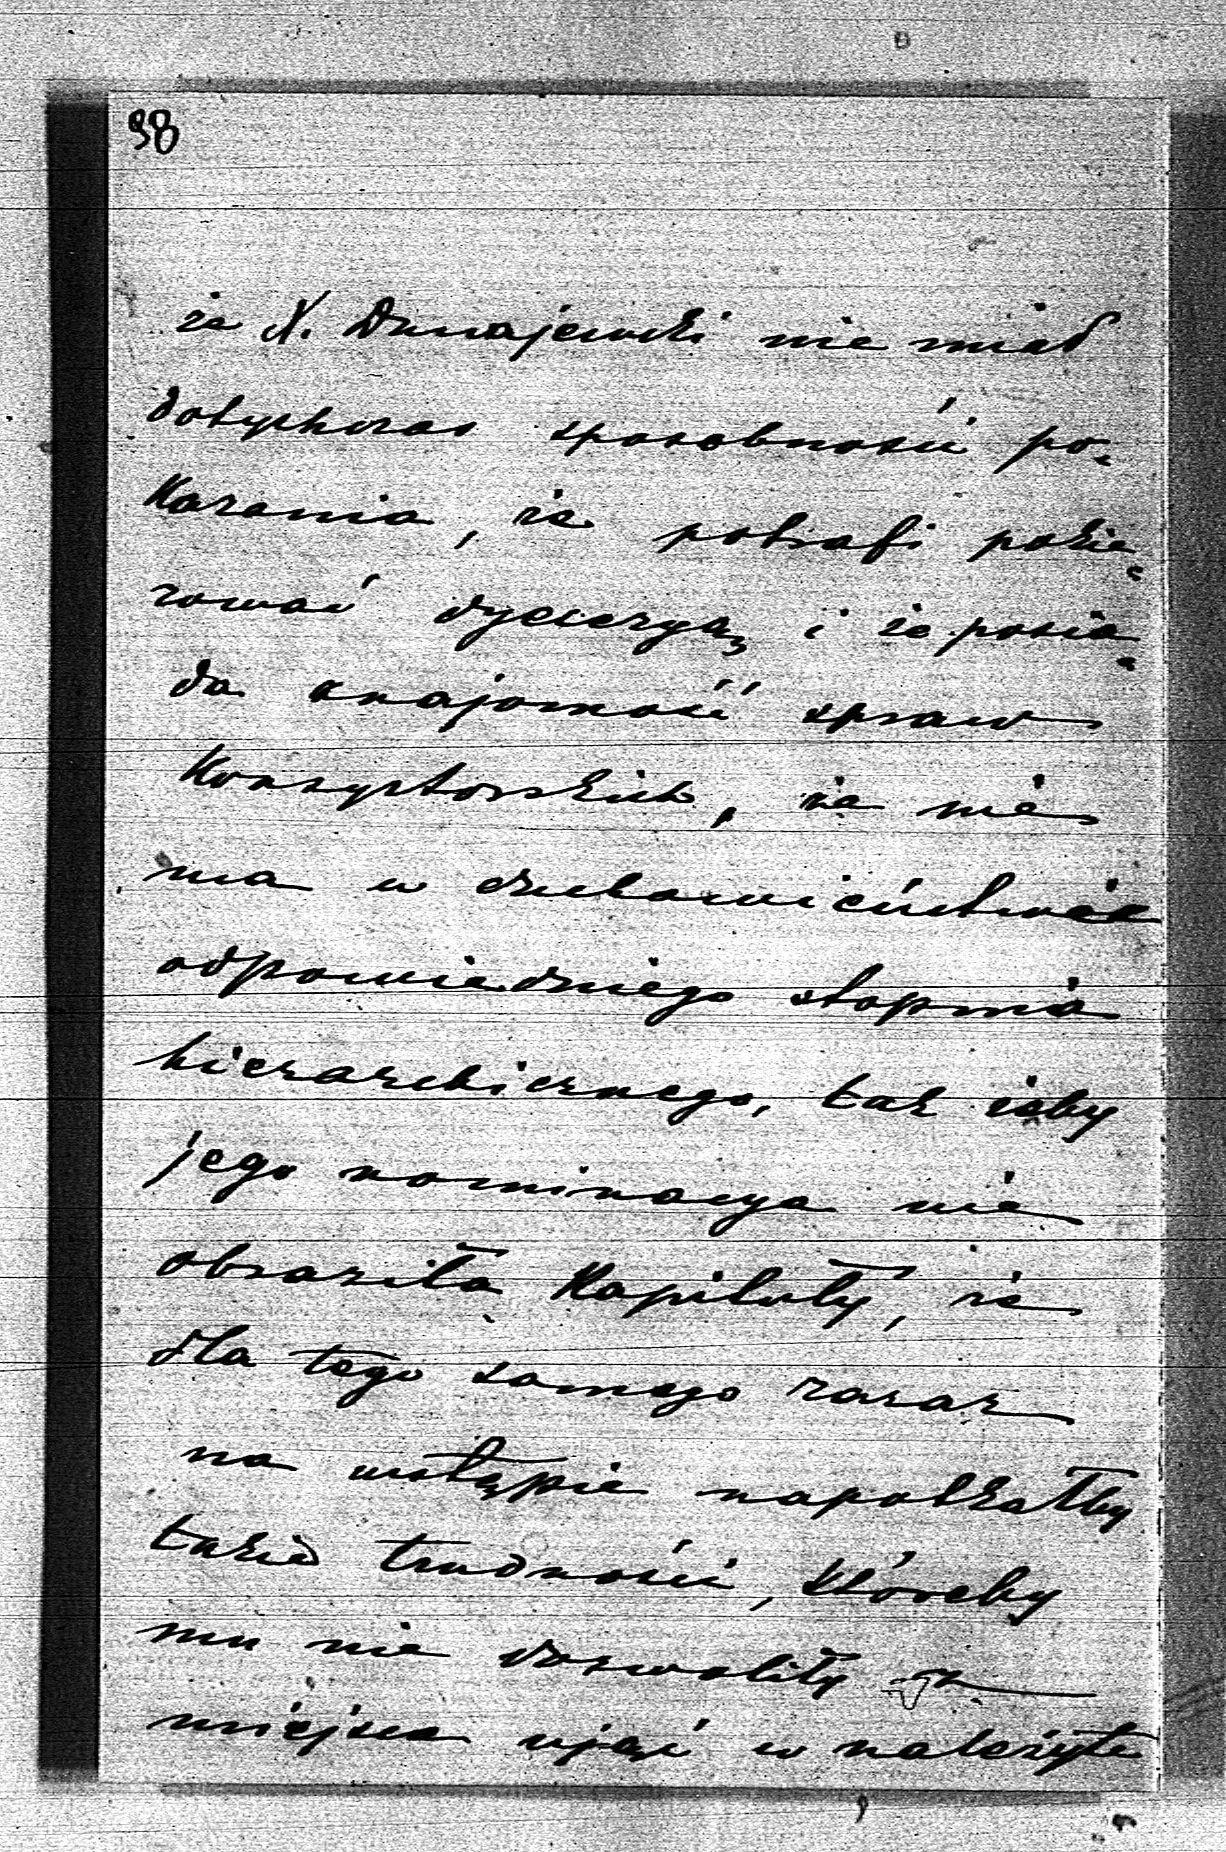 98
że X. Dunajewski nie miał
dotychczas sposobności po-
kazania, że potrafi pokie-
rować dyecezyą i że posia-
da znajomość spraw
konsystorskich, że nie
ma w duchowieństwie
odpowiedniego stopnia
hierarchicznego, tak iżby
jego nominacya nie
obraziła Kapituły, że
dla tego samego zaraz
na wstępie napotkałby
takie trudności, któreby
mu nie dozwoliły z
miejsca ująć w należyte